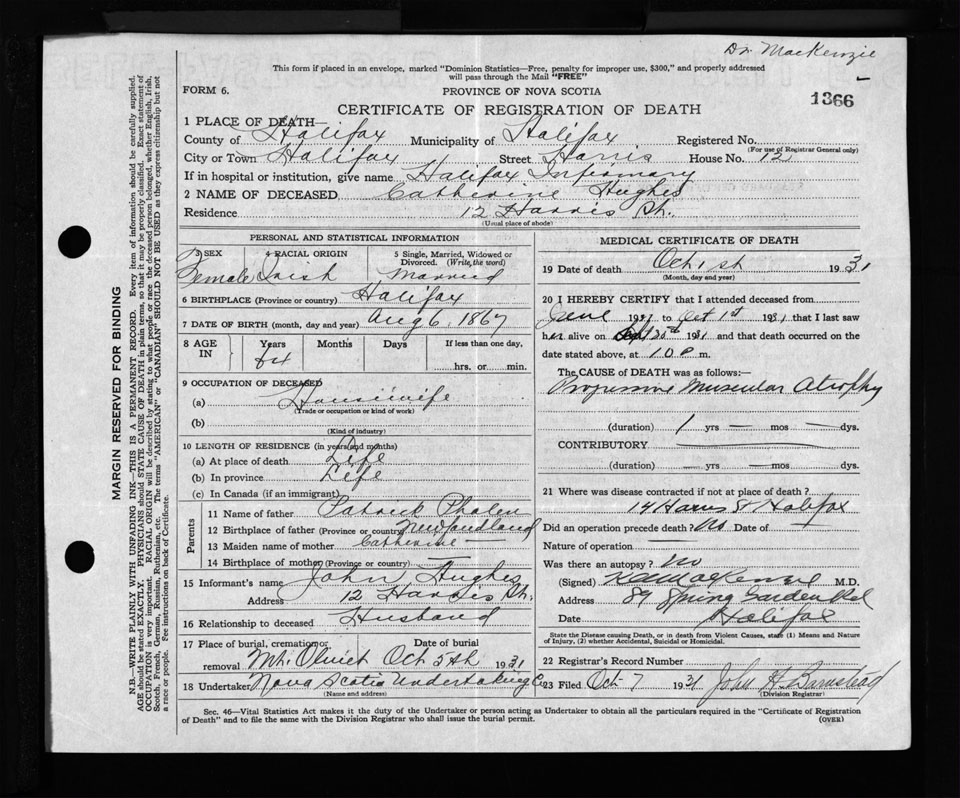 Dr. MacKenzie
This form if placed in an envelope, marked "Dominion Statistics—Free, penalty for improper use, $300," and properly addressed
will pass through the Mail "FREE"
FORM 6.
PROVINCE OF NOVA SCOTIA
1366
CERTIFICATE OF REGISTRATION OF DEATH
1 PLACE OF DEATH—
County of Halifax Municipality of Halifax Registered No.
(For use of Registrar General only)
City or Town Halifax Street Harris House No. 12
If in hospital or institution, give name Halifax Infirmary
2 NAME OF DECEASED Catherine Hughes
Residence 12 Harris St.
(Usual place of abode)
PERSONAL AND STATISTICAL INFORMATION
3 SEX 4 RACIAL ORIGIN 5 Single, Married, Widowed or
Divorced. (Write the word)
Female Irish Married
6 BIRTHPLACE (Province or country) Halifax
7 DATE OF BIRTH (month, day and year) Aug 6, 1867
8 AGE IN Years Months Days If less than one day,
64 hrs. or min.
9 OCCUPATION OF DECEASED
(a) Housewife
(Trade or occupation or kind of work)
(b)
(Kind of industry)
10 LENGTH OF RESIDENCE (in years and months)
(a) At place of death Life
(b) In province Life
(c) In Canada (if an immigrant)
Parents
11 Name of father Patrick Phalen
12 Birthplace of father (Province or country) Newfoundland
13 Maiden name of mother Catherine —
14 Birthplace of mother (Province or country) —
15 Informant's name John Hughes
Address 12 Harris St.
16 Relationship to deceased Husband
17 Place of burial, cremation or Date of burial
removal Mt. Olivet Oct 5th 1931
18 Undertaker Nova Scotia Undertaking Co
(Name and address)
MEDICAL CERTIFICATE OF DEATH
19 Date of death Oct 1st 1931
(Month, day and year)
20 I HEREBY CERTIFY that I attended deceased from
June 1931 to Oct 1st 1931 that I last saw
her alive on Sept 30th 1931 and that death occurred on the
date stated above, at 1.0 P m.
The CAUSE of DEATH was as follows:
Progressive Muscular Atrophy
(duration) 1 yrs — mos — dys.
CONTRIBUTORY
(duration) — yrs — mos — dys.
21 Where was disease contracted if not at place of death?
14 Harris St Halifax
Did an operation precede death? No Date of —
Nature of operation —
Was there an autopsy? No
(Signed) MacKenzie M.D.
Address 89 Spring Garden Rd
Date Halifax
State the Disease causing Death, or in death from Violent Causes, state (1) Means and Nature
of Injury, (2) whether Accidental, Suicidal or Homicidal.
22 Registrar's Record Number
23 Filed Oct 7 1931 John H. Barnstead
(Division Registrar)
Sec. 46—Vital Statistics Act makes it the duty of the Undertaker or person acting as Undertaker to obtain all the particulars required in the "Certificate of Registration
of Death" and to file the same with the Division Registrar who shall issue the burial permit.
(OVER)
MARGIN RESERVED FOR BINDING
N.B.—WRITE PLAINLY WITH UNFADING INK—THIS IS A PERMANENT RECORD. Every item of information should be carefully supplied.
AGE should be stated EXACTLY. PHYSICIANS should STATE CAUSE OF DEATH in plain terms, so that it may be properly classified. Exact statement of
OCCUPATION is very important. RACIAL ORIGIN will be described by stating to what people or race the deceased person belonged, whether English, Irish,
Scotch, French, German, Russian, Ruthenian, etc. The terms "AMERICAN" or "CANADIAN" SHOULD NOT BE USED as they express citizenship but not
a race or people. Fee instructions on back of Certificate.